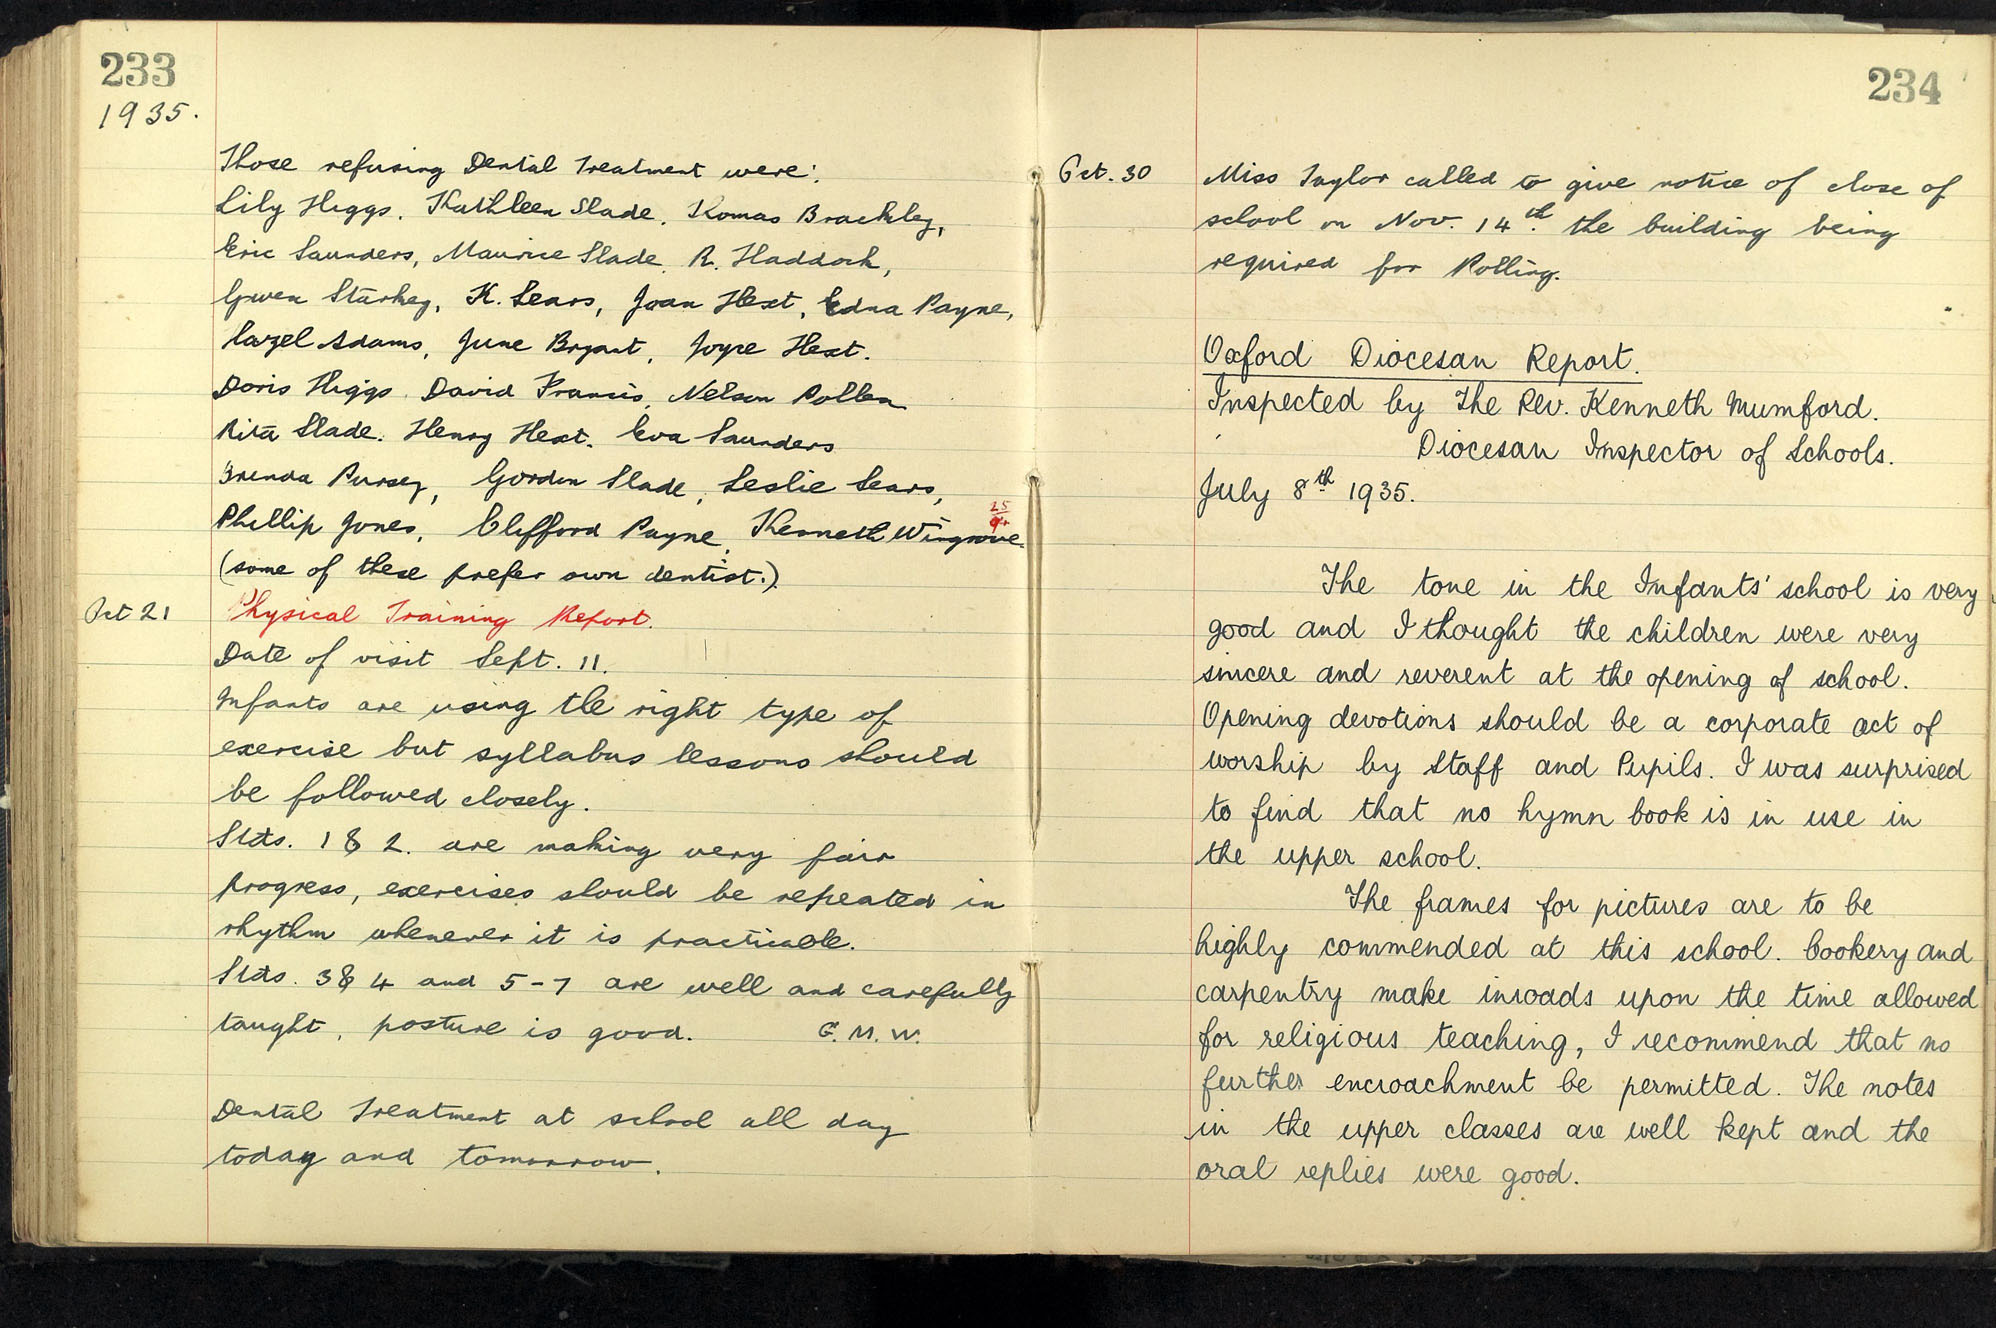 233
1935.
Those refusing Dental Treatment were:
Lily Higgs. Kathleen Slade. Komas Brackley,
Eric Saunders, Maurice Slade. R. Haddock,
Gwen Starkey, K. Sears, Joan Hext, Edna Payne,
Hazel Adams, June Bryant, Joyce Hext.
Doris Higgs. David Francis, Nelson Pollen
Rita Slade. Henry Hext. Eva Saunders
Brenda Pursey, Gordon Slade, Leslie Sears,
25
Phillip Jones, Clifford Payne, Kenneth Wingrove.
(some of these prefer own dentist.)
Oct 21 Physical Training Report.
Date of visit Sept. 11.
Infants are using the right type of
exercise but syllabus lessons should
be followed closely.
Stds. 1 & 2. are making very fair
progress, exercises should be repeated in
rhythm whenever it is practicable.
Stds. 3 & 4 and 5-7 are well and carefully
taught, posture is good. E. M. W.
Dental Treatment at school all day
today and tomorrow.
234
Oct. 30 Miss Taylor called to give notice of close of
school on Nov. 14th. the building being
required for Polling.
Oxford Diocesan Report.
Inspected by The Rev. Kenneth Mumford.
Diocesan Inspector of Schools.
July 8th 1935.
The tone in the Infants' school is very
good and I thought the children were very
sincere and reverent at the opening of school.
Opening devotions should be a corporate act of
worship by Staff and Pupils. I was surprised
to find that no hymn book is in use in
the upper school.
The frames for pictures are to be
highly commended at this school. Cookery and
carpentry make inroads upon the time allowed
for religious teaching, I recommend that no
further encroachment be permitted. The notes
in the upper classes are well kept and the
oral replies were good.